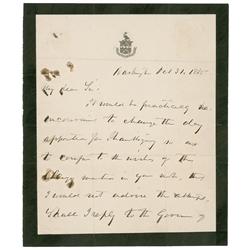 Washington Oct 31, 1885
My dear Sir:
It would be practically
inconvenient to change the day
appointed for Thanksgiving so as
to conform to the wishes of the
clergy in you with this
I would not advise the
Shall I reply to the Governor of